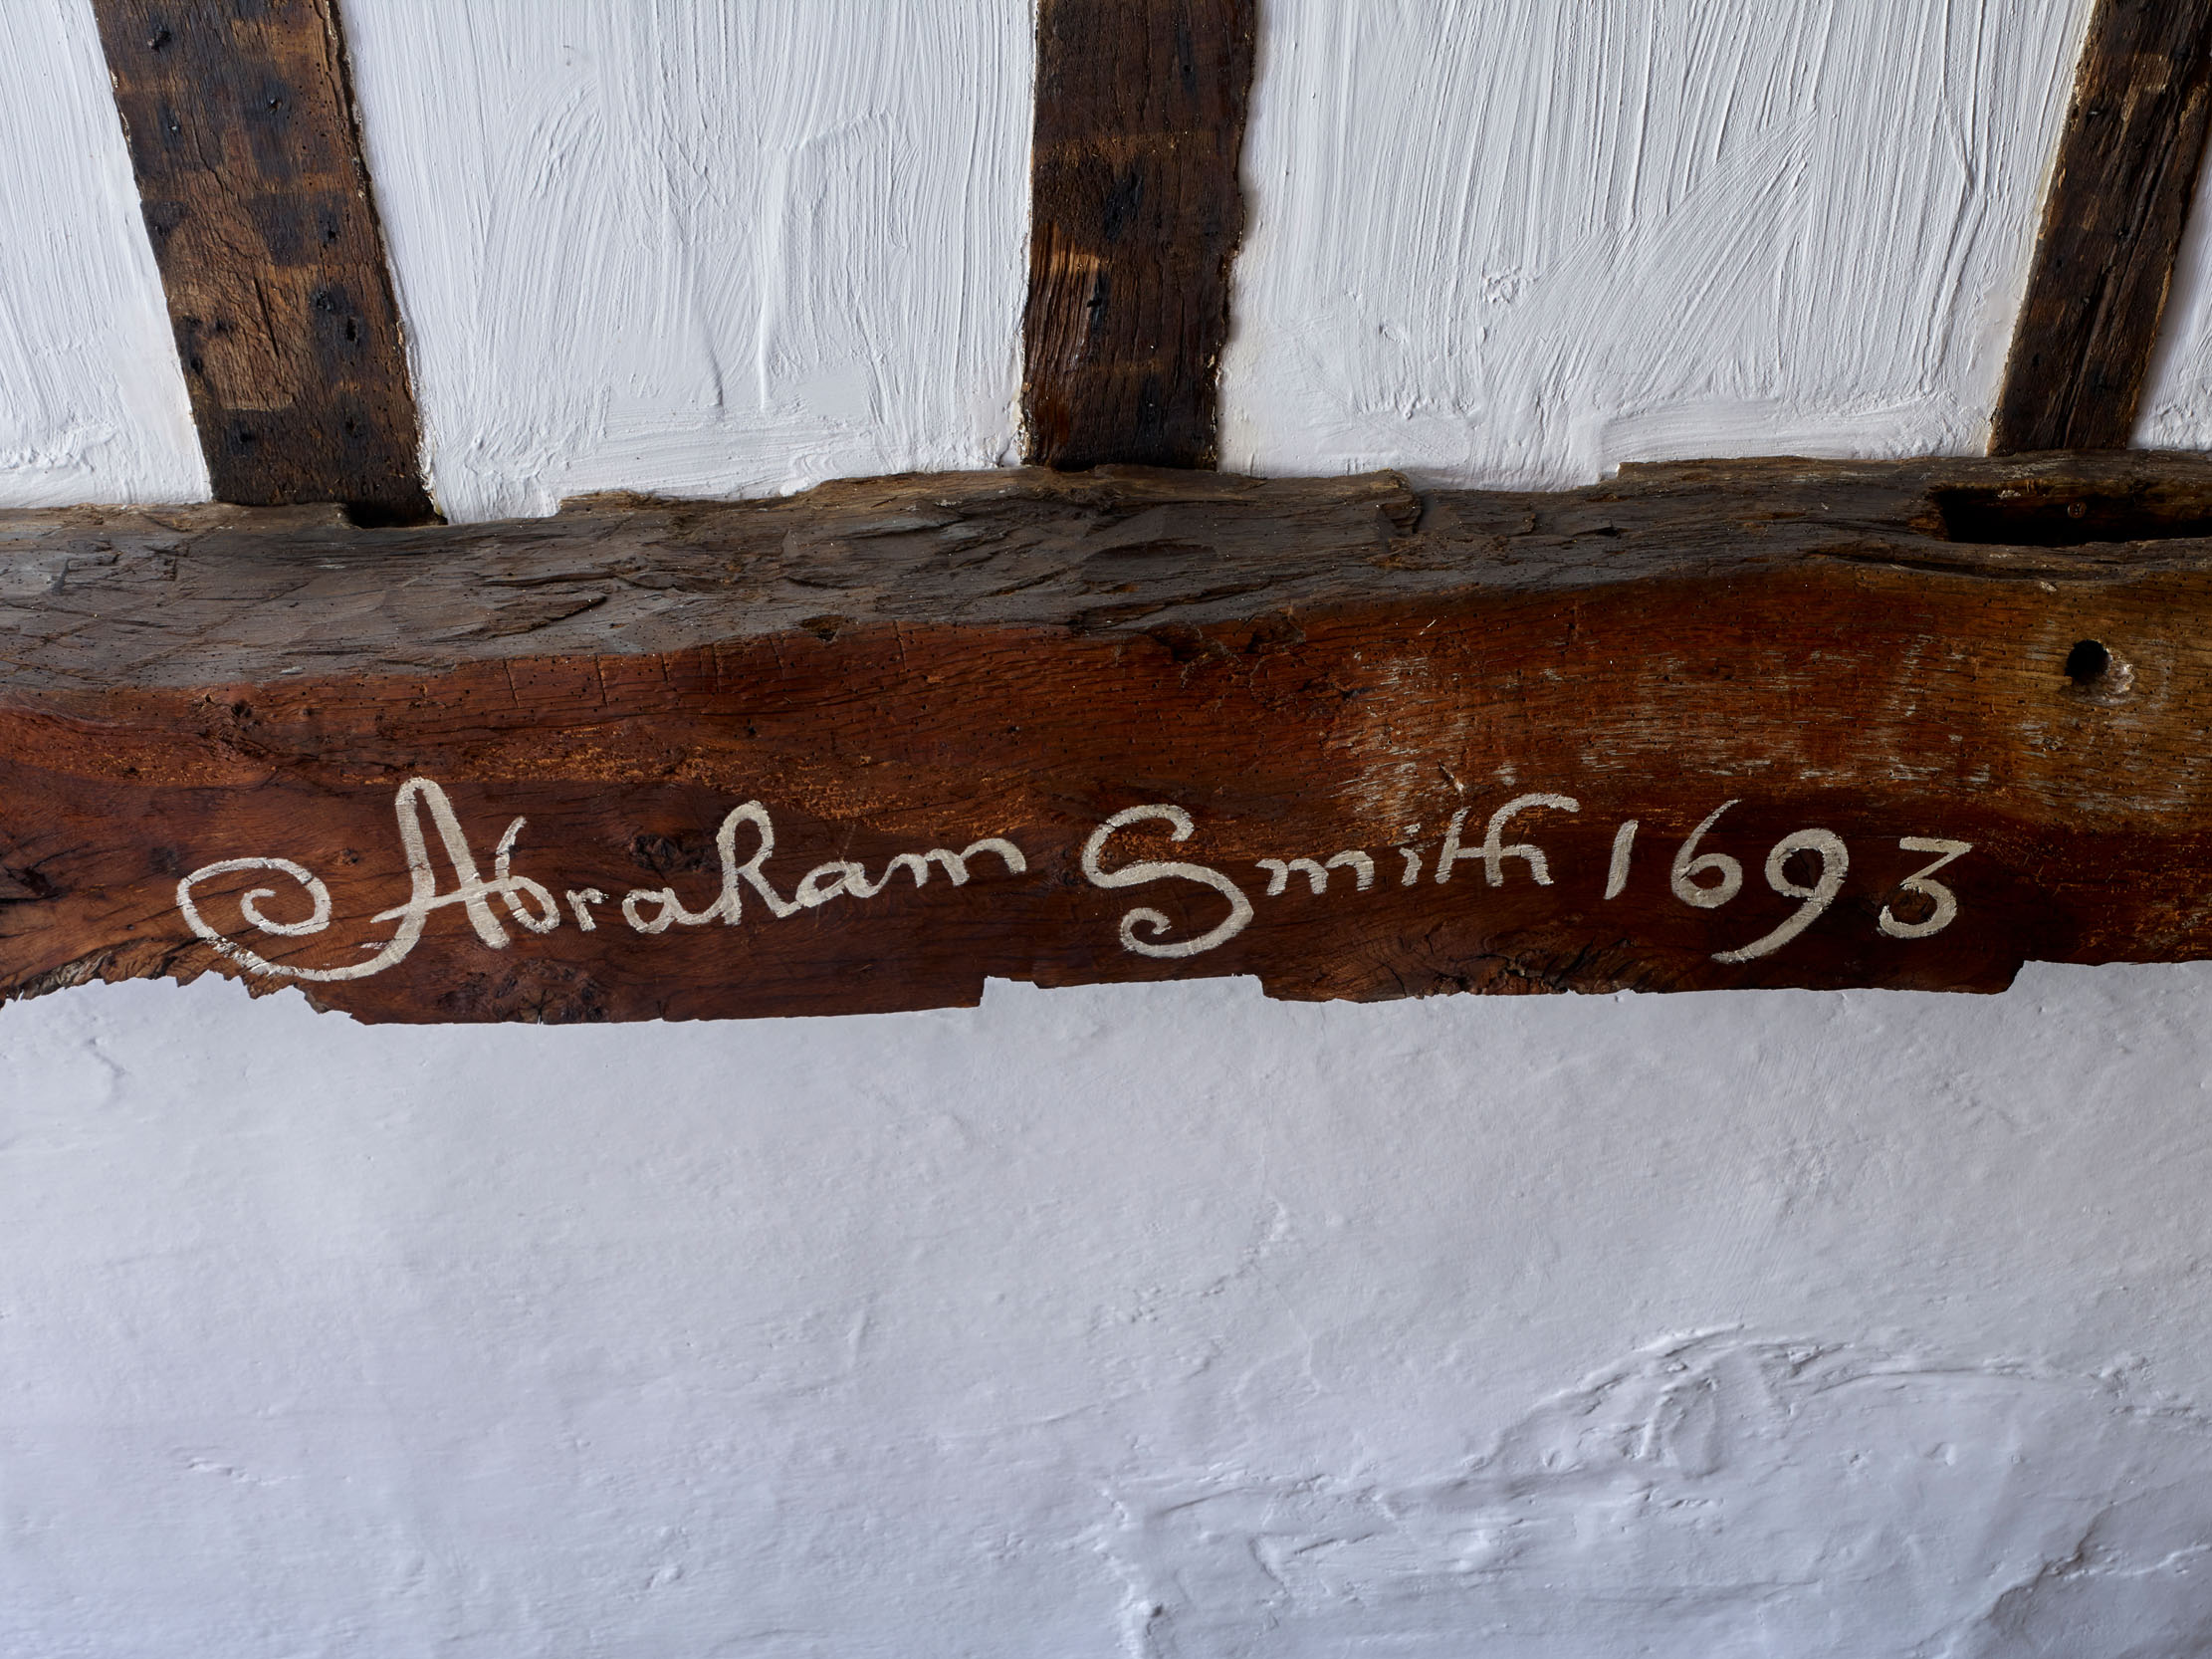 Abraham Smith 1693